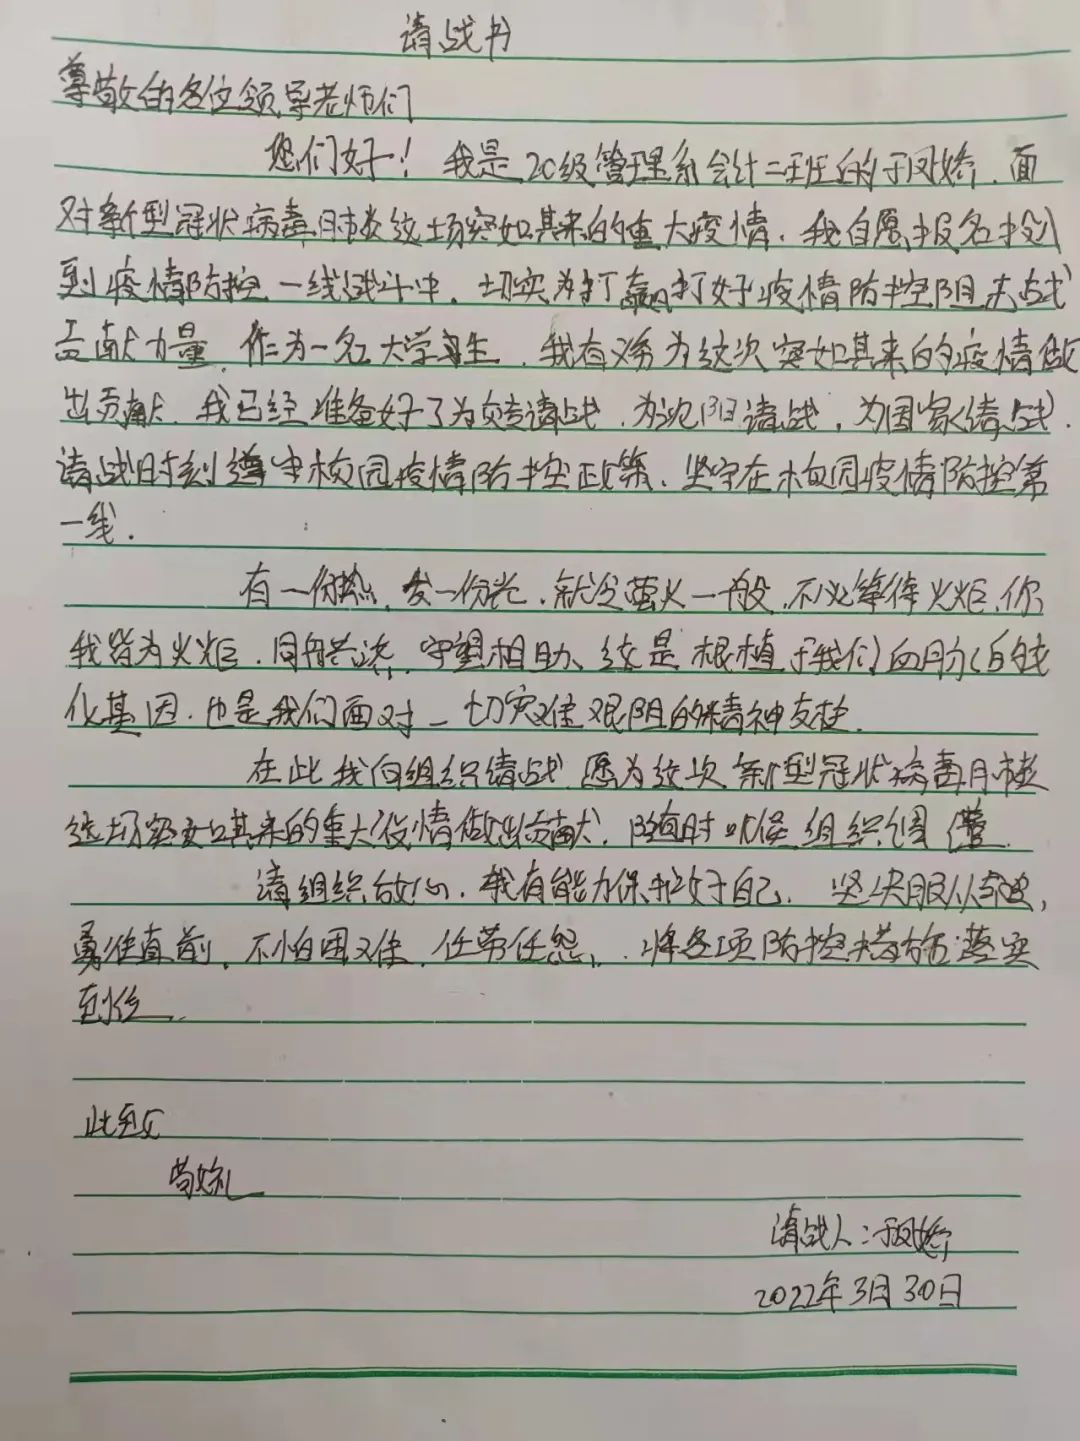 请战书
尊敬的各位领导老师们
您们好！我是20级管理系会计二班的于凤娇，面
对新型冠状病毒肺炎这场突如其来的重大疫情，我自愿报名投入
到疫情防控一线战斗中，切实为打赢打好疫情防控阻击战
贡献力量，作为一名大学生，我有义务为这次突如其来的疫情做
出贡献，我已经准备好了为校请战，为沈阳请战，为国家请战，
请战时刻遵守校园疫情防控政策，坚守在校园疫情防控第
一线.
有一份热，发一份光，就令萤火一般，不必等待火炬，你
我皆为火炬，同舟共济，守望相助、这是根植于我们血脉的文
化基因，也是我们面对一切灾难艰阻的精神支柱.
在此我向组织请战，愿为这次新型冠状病毒肺炎
这场突如其来的重大疫情做出贡献，随时听候组织调遣.
请组织放心，我有能力保护好自己，坚决服从
勇往直前，不怕困难，任劳任怨，将各项防控措施落实
到位.
此致
敬礼
请战人：于凤娇
2022年3月30日